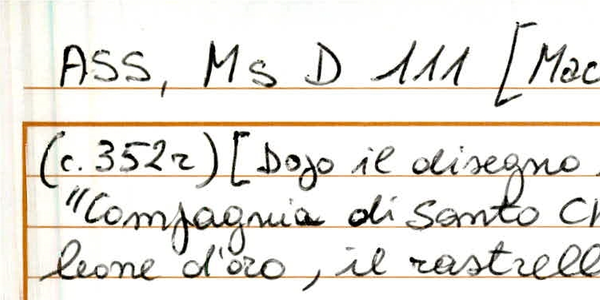 ASS, Ms D 111 [Mac
(c. 352r) [Dopo il disegno
"Compagnia di Santo Ch
leone d'oro, il rastrell